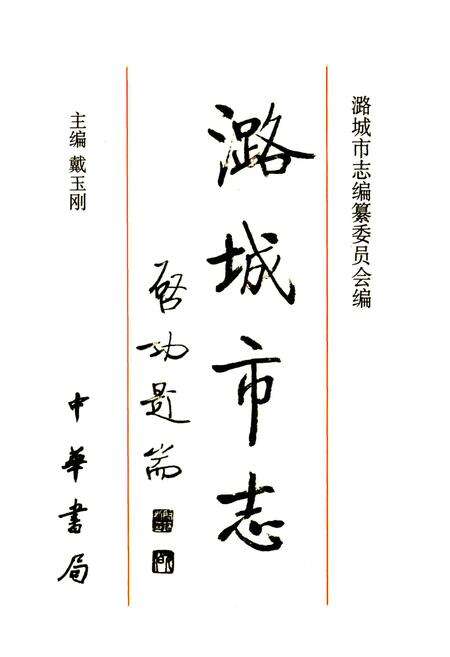 潞城市志编纂委员会编
潞城市志
启功题耑
主编 戴玉刚
中华书局